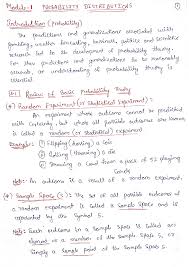 Module-1 PROBABILITY DISTRIBUTIONS 1
Introduction (Probability)
The predictions and generalizations associated with
gambling, weather forecasting, business, politics and scientific
research led to the development of probability theory.
As the predictions and generalizations cannot be
accurate, an understanding of probability theory is
essential.
Review of Basic Probability Theory
(*) Random Experiment (or Statistical Experiment):
An experiment whose outcome cannot be predicted
with certainty, but whose all possible outcomes are known
is called a random (or statistical) experiment
Examples: 1) Flipping (tossing) a coin
2) Rolling (throwing) a die
3) Drawing a card from a pack of 52 playing
cards
Note: An outcome is a result of a random
experiment.
(*) Sample Space (S): The set of all possible outcomes of
a random experiment is called a Sample Space and is
represented by the symbol S.
Note: Each outcome in a Sample Space is called an
element or a member of the Sample Space S, or
simply a Sample Point of the Sample Space S.